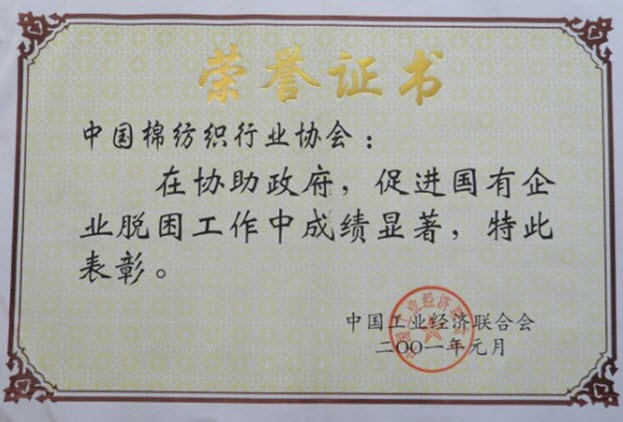 荣誉证书
中国棉纺织行业协会：
在协助政府，促进国有企
业脱困工作中成绩显著，特此
表彰。
中国工业经济联合会
二〇〇一年元月
中国工业经济联合会